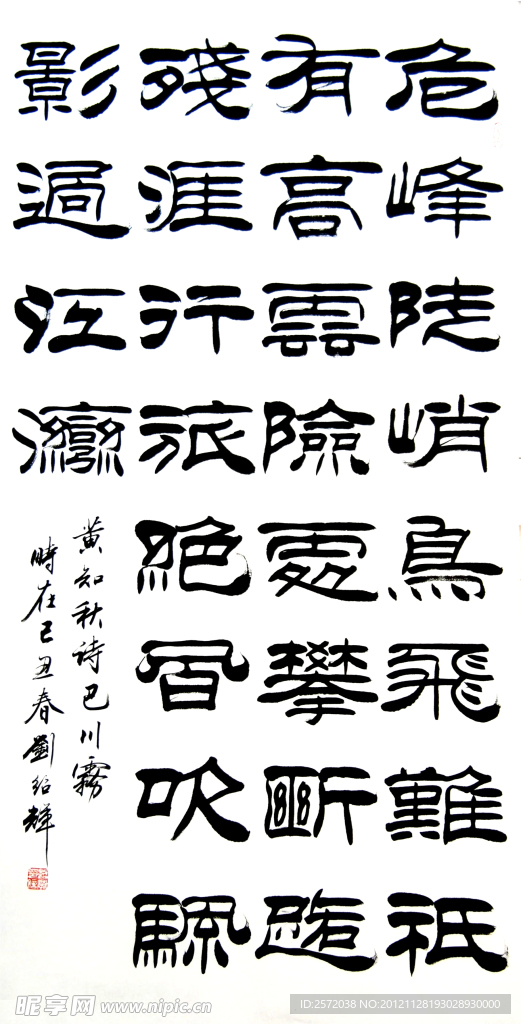 危峰陡峭鳥飛難祇
有高雲險處攀斷路
殘涯行旅絕風吹颿
影過江灣
黃知秋詩巴川霧
時在己丑春劉紹輝
昵享网 www.nipic.cn
ID:2572038 NO:20121128193028930000